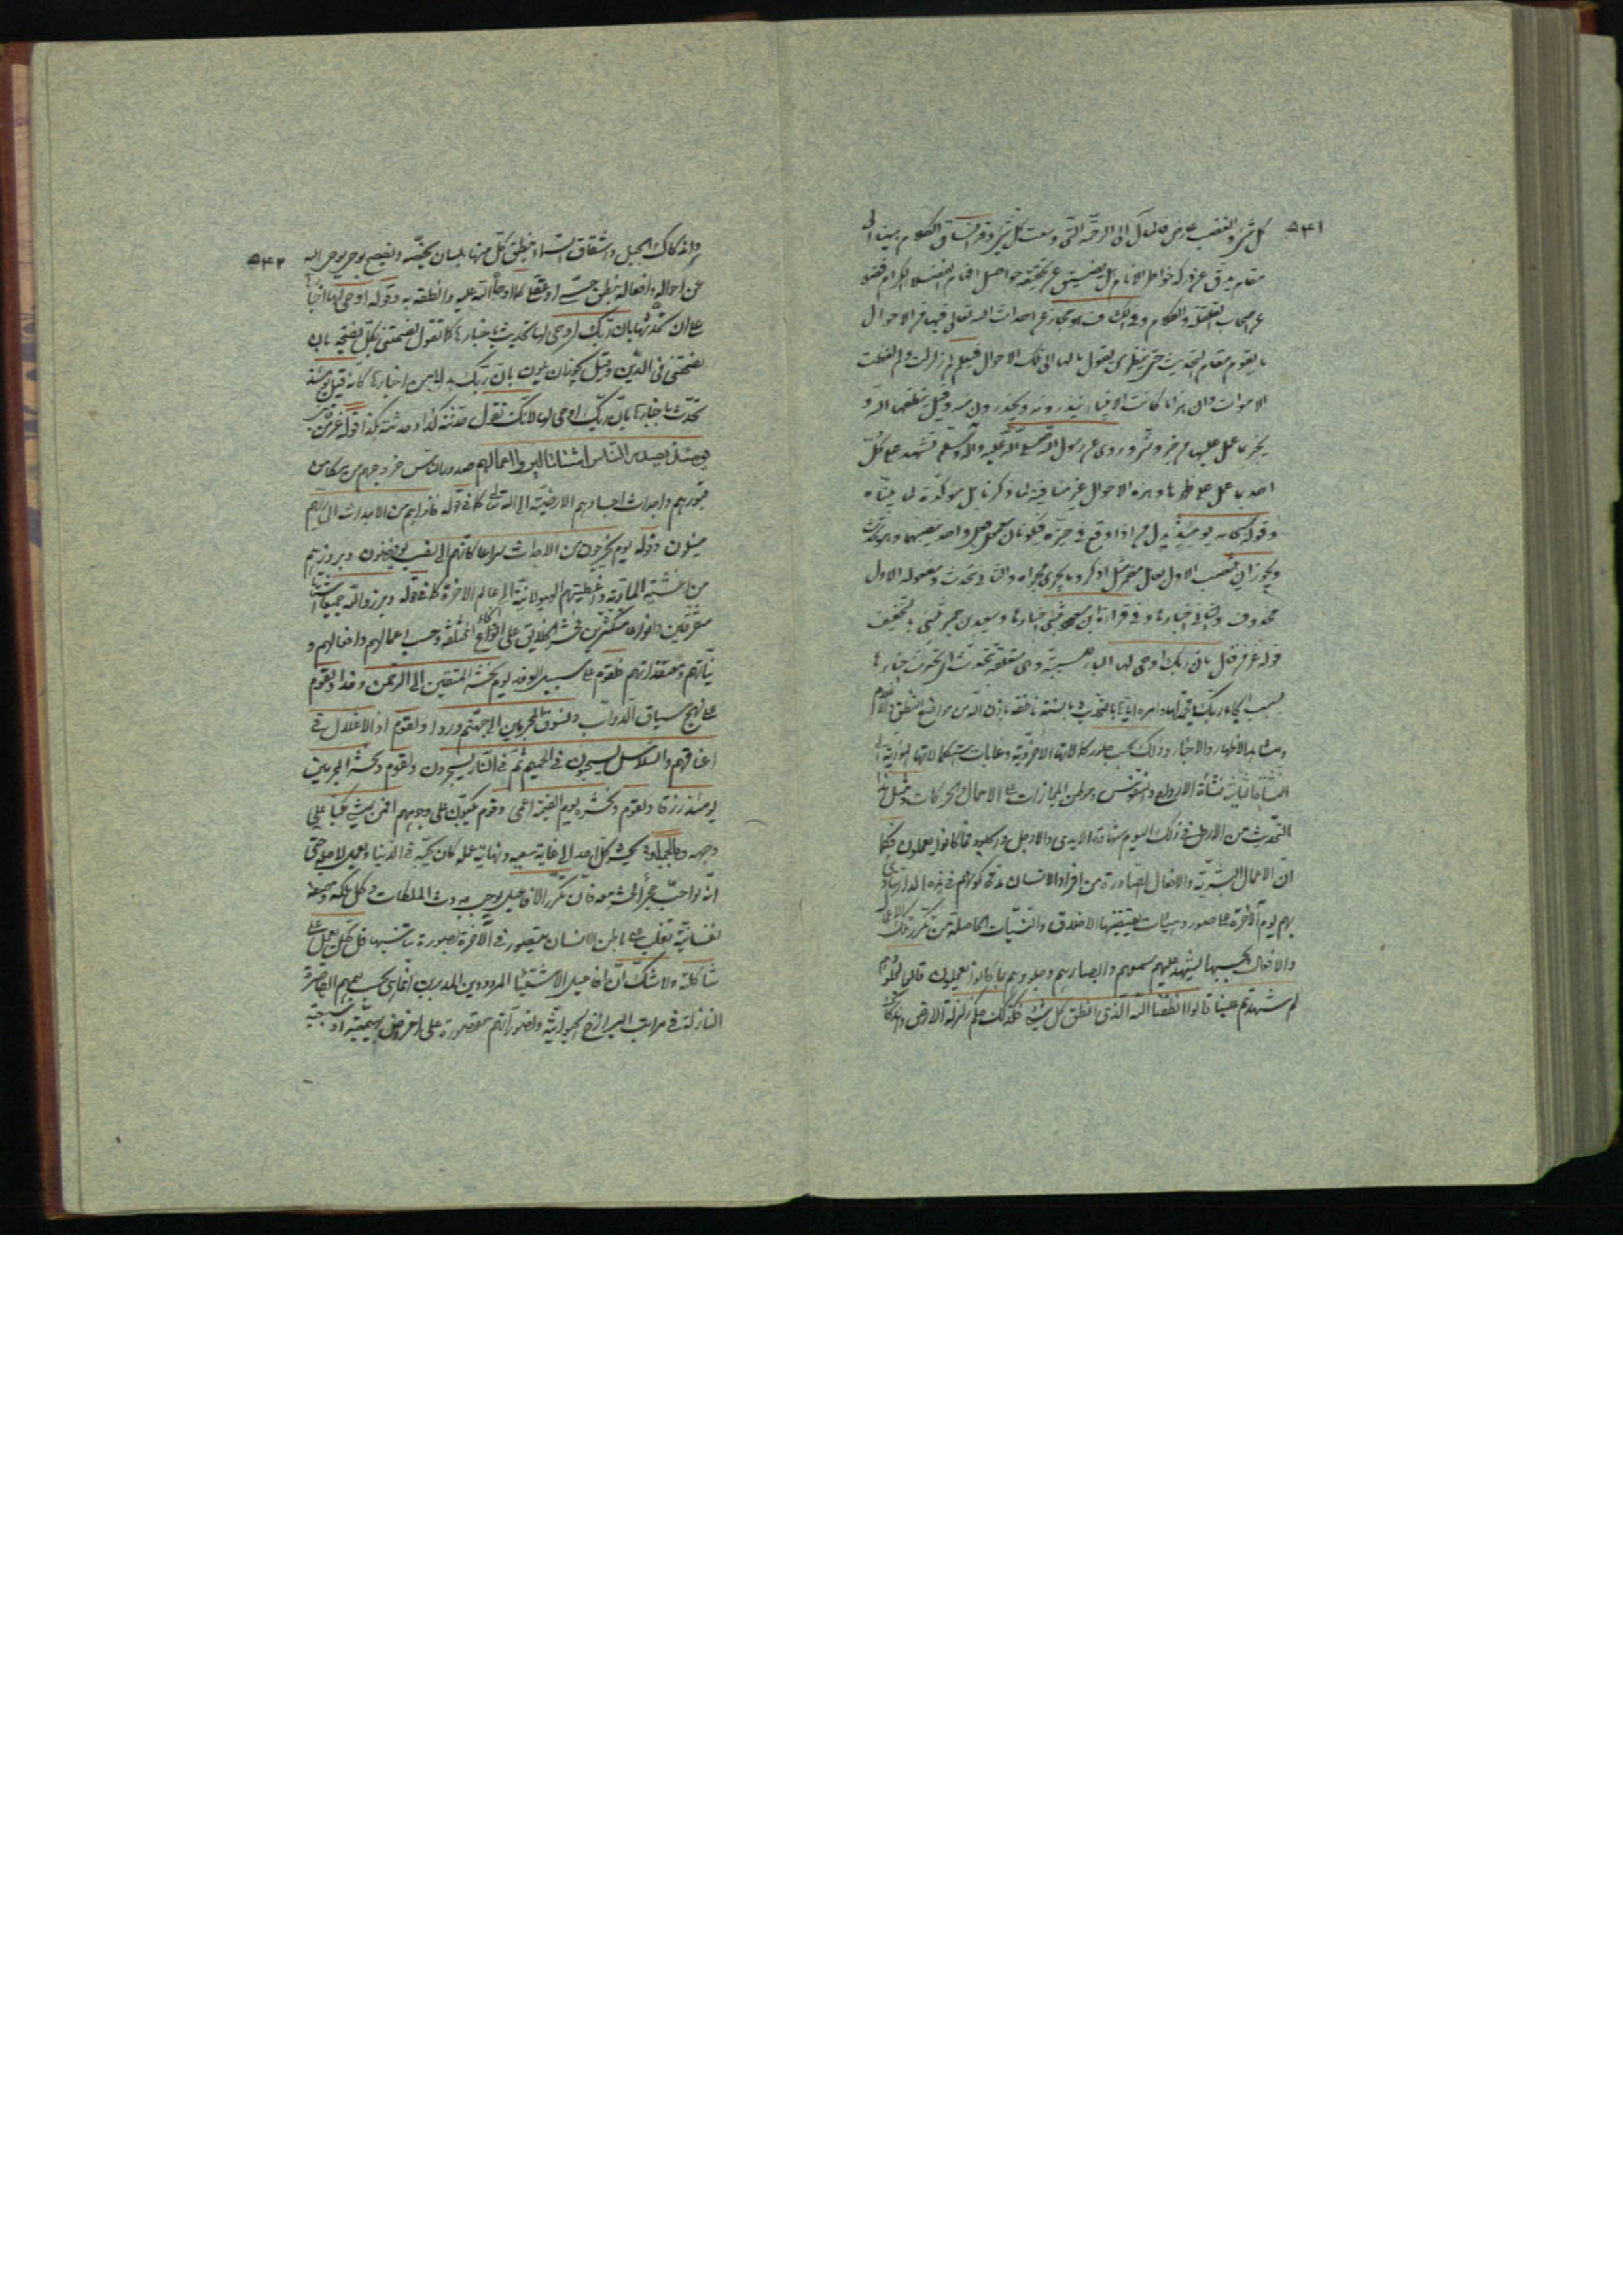 ۵۴۱
كل شئ والغضب عارض فالمآل الى الرحمة التى وسعت كل شئ وقد انساق الكلام بهنا الى
مقام يدق عن دركه خواطر الانام بل يضيق عن تحققه حواصل افهام
عن اصحاب التعقل والكلام وقيل تحديث مجاز عن احداث الله تعالى فيها من الاحوال
ما يقوم مقام التحديث حتى ينظر من يقول مالها الى تلك الاحوال فيعلم لم زلزلت ولم لفظت
الاموات وان هذا ما كانت الانبياء ينذرونه ويحذرون منه وقيل ينطقها الله و
يخبر بما عمل عليها من خير وشر وروى عن رسول الله صلى الله عليه وآله وسلم تشهد على كل
احد بما عمل على ظهرها وهذه الاحوال غير منافية لما ذكرنا بل مؤكدة لما بيناه
وقوله سبحانه يومئذ بدل من اذا وقع فى حيزه فيكونان معمولى فعل واحد ينصبهما وهو تحدث
ويجوز ان ينصب الاول بعامل مضمر مثل اذكر وما يجرى مجراه والثانى بتحدث ومعموله الاول
محذوف والثانى اخبارها وفى قراءة ابن مسعود تنبئ اخبارها وسعيد بن جبير تنبئ بالتخفيف
قوله عز من قائل بان ربك اوحى لها الباء سببية وهى متعلقة بتحدث اى تحدث اخبارها
بسبب ايحاء ربك لها وامره اياها بالتحديث بالسنة ناطقة باذن الله من مواضع النطق والاعلام
ومشاهد الاظهار والاخبار وذلك بحسب صور كمالاتها الاخروية وغايات استكمالاتها النورية الى
النشأة الثانية نشأة الارواح والنفوس وموطن المجازات على الاعمال والحركات ومثل هذا
التحديث من الارض فى ذلك اليوم شهادة الايدى والارجل والجلود بما كانوا يعملون فكما
ان الاعمال البشرية والافعال الصادرة من افراد الانسان مدة كونهم فى هذه الدار
بهم يوم الآخرة على صور وهيئات يقتضيها الاخلاق والنيات الحاصلة من تكرر تلك الاعمال
والافعال وبحسبها يشهد عليهم سمعهم وابصارهم وجلودهم بما كانوا يعملون قالوا لجلودهم
لم شهدتم علينا قالوا انطقنا الله الذى انطق كل شئ فكذلك حكم زلزلة الارض
۵۴۲
واندكاك الجبل وانشقاق السماء ينطق كل منها بلسان يخصه ويفصح
عن احواله وافعاله بنطق حسى او عقلى كما اوحاه الله عليه وانطقه به وقوله اوحى لها
على ان تحديثها بان ربك اوحى لها تحديث باخبارها كما تقول نصحتنى كل نصيحة بان
نصحتنى فى الدين وقيل يجوز ان يكون بان ربك بدلا من اخبارها كانه قيل يومئذ
تحدث باخبارها بان ربك اوحى لها لانك تقول حدثته كذا وحدثته بكذا قوله عز من قائل
يومئذ يصدر الناس اشتاتا ليروا اعمالهم صدور الناس خروجهم من مكامن
قبورهم واجداث اجسادهم الارضية الى الله تعالى كما فى قوله فاذا هم من الاجداث الى ربهم
ينسلون وقوله يوم يخرجون من الاجداث سراعا كانهم الى نصب يوفضون وبروزهم
من اغشية المادية واغطيتهم الهيولانية الى عالم الاخرة كما فى قوله وبرزوا لله جميعا اشتاتا
متفرقين وانواعا متكثرين فحشر الخلائق على انحاء مختلفة وحسب اعمالهم وافعالهم و
نياتهم ومعتقداتهم فلقوم على سبيل الوفد يوم نحشر المتقين الى الرحمن وفدا ولقوم
على نهج سياق الدواب ونسوق المجرمين الى جهنم وردا ولقوم اذ الاغلال فى
اعناقهم والسلاسل يسحبون فى الحميم ثم فى النار يسجرون ولقوم ونحشر المجرمين
يومئذ زرقا ولقوم ونحشره يوم القيمة اعمى وقوم مكبون على وجوههم افمن يمشى مكبا على
وجهه وبالجملة يحشر كل احد الى غاية سعيه ونهاية عمله كان يحبه فى الدنيا ويعمل لاجله حتى
انه لو احب حجرا لحشر معه فان تكرر الافاعيل يوجب حدوث الملكات وكل ملكة وصفة
نفسانية تغلب على باطن الانسان يتصور فى الآخرة بصورة يناسبها قل كل يعمل على
شاكلته ولا شك ان افاعيل الاشقياء المردودين المدبرين انما هى بحسب هممهم القاصرة
النازلة فى مراتب البرازخ الحيوانية وتصوراتهم مقصورة على اغراض بهيمية او سبعية